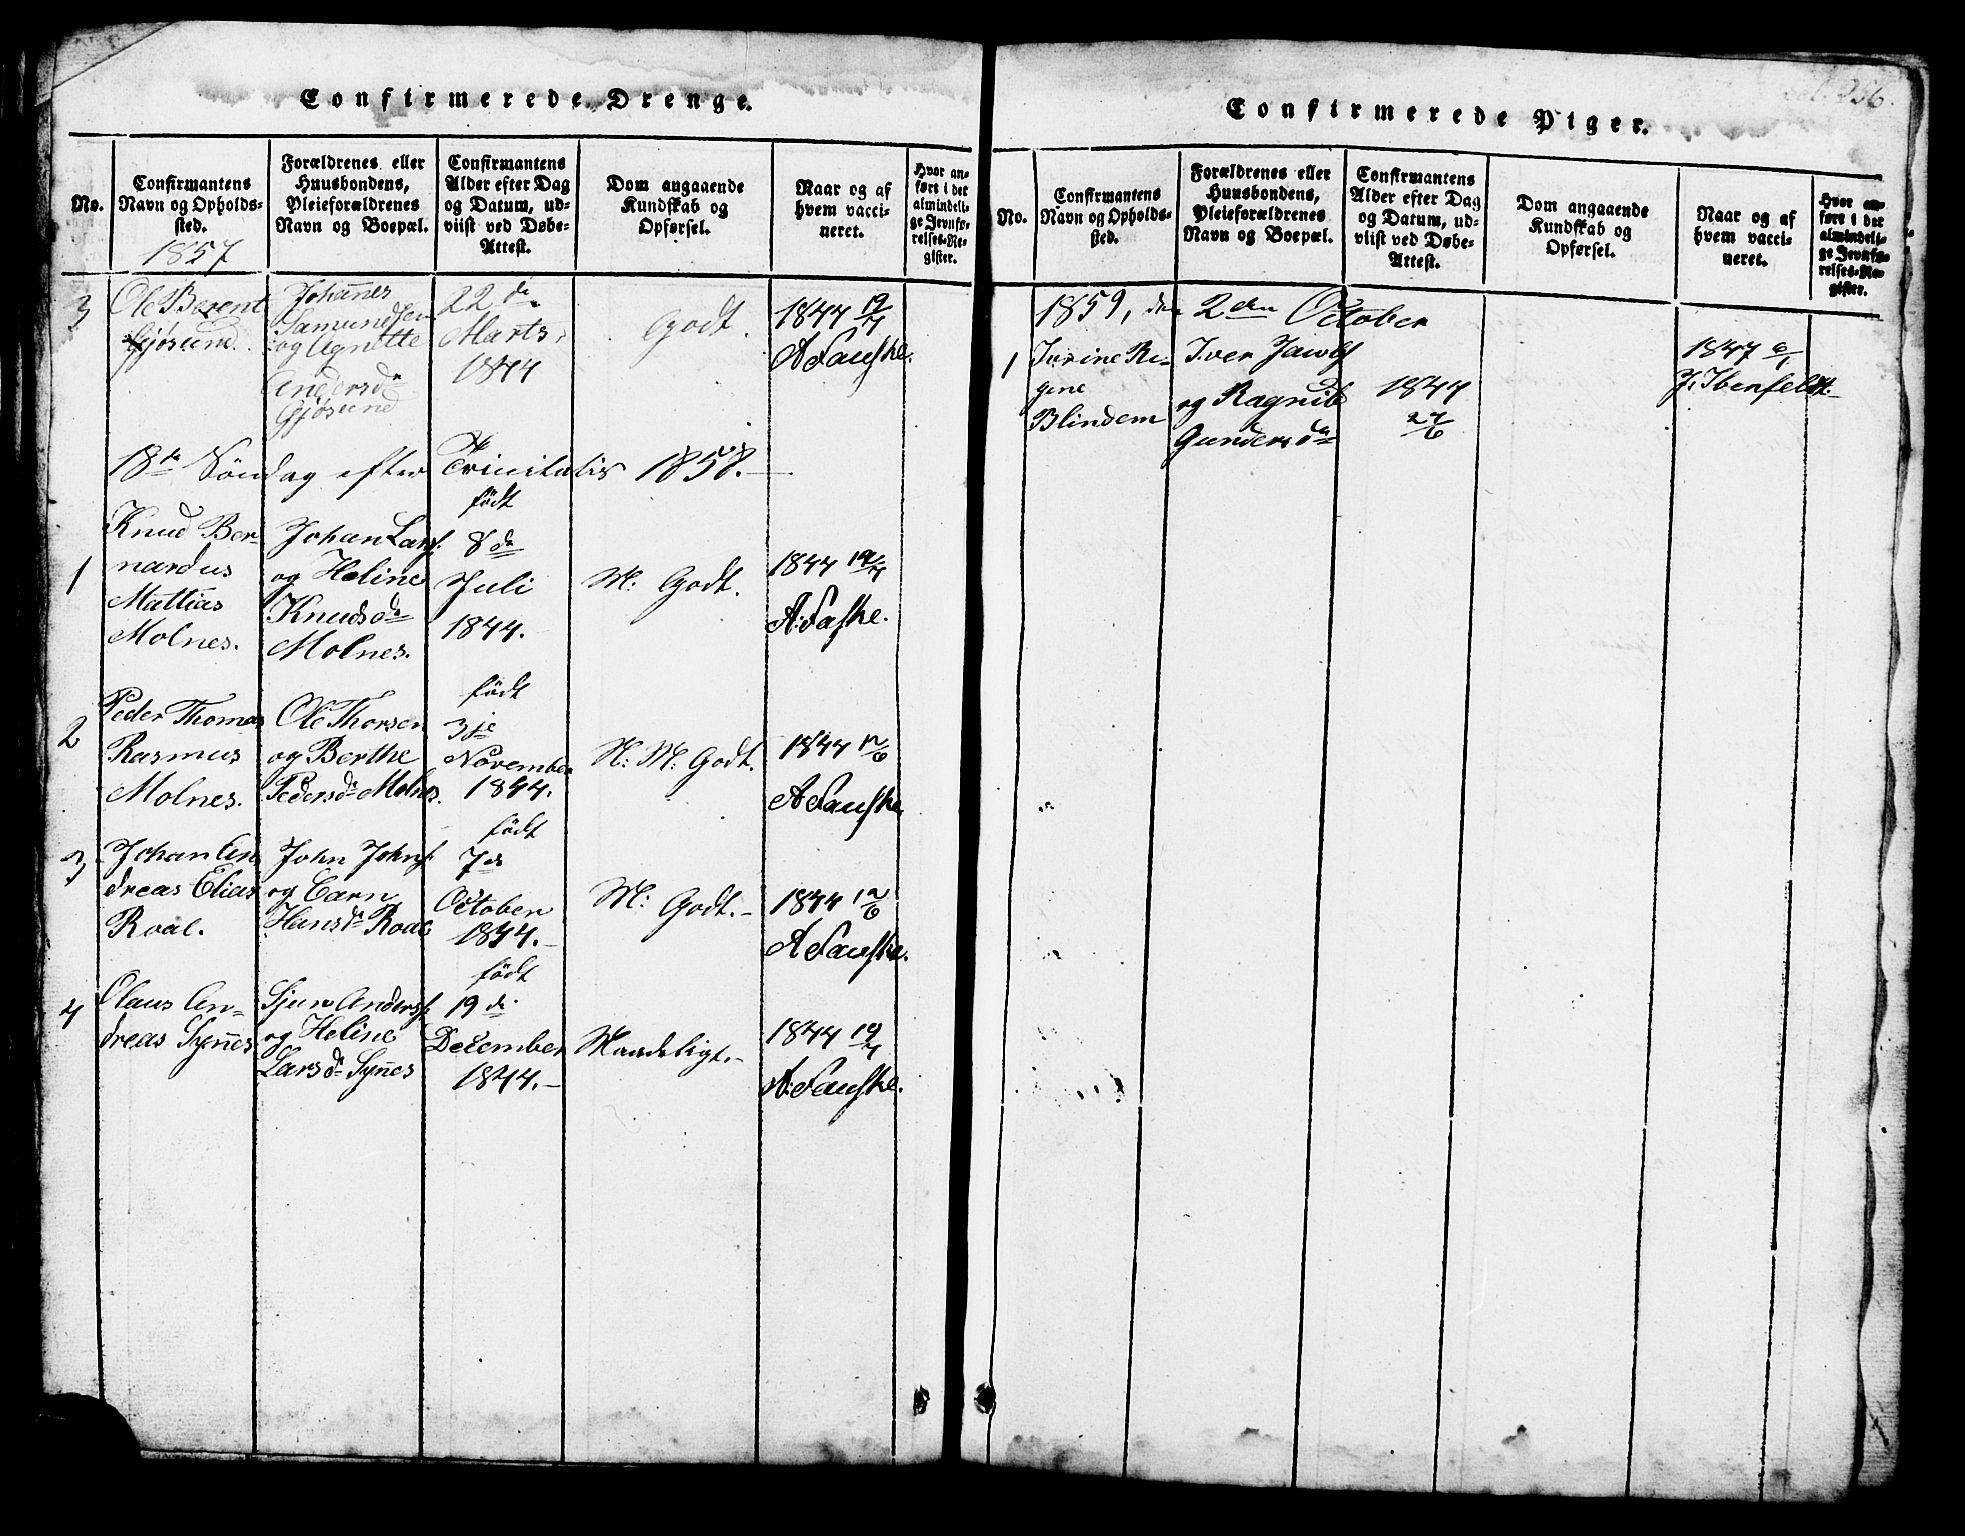 Confirmerede Drenge.
No.
Confirmantens
Navn og Opholds-
sted.
1857
Forældrenes eller
Huusbondens,
Pleieforældrenes
Navn og Boepæl.
Confirmantens
Alder efter Dag
og Datum, ud-
viist ved Døbe-
Attest.
Dom angaaende
Kundskab og
Opførsel.
Naar og af
hvem vacci-
neret.
Hvor an-
ført i det
almindeli-
ge Jevnfø-
relses-Re-
gister.
3
Ole Berent
Gjøsund.
Johannes
Samundsen
og Agnette
Andersd
Gjøsund
22 de
Marts
1844
Godt.
1844 19/7
A Fauske.
18de Søndag efter Trinitatis 1858.
1
Knud Ber-
nardus
Mattias
Molnes.
Johan Larsf.
og Heline
Knudsd
Molnes.
födt
8de
Juli
1844.
M. Godt.
1844 19/7
A: Faske.
2
Peder Thomas
Rasmus
Molnes.
Ole Thorsen
og Berthe
Pedersd Molnes.
födt
3je
November
1844.
N: M: Godt.
1844 12/6
A Fauske
3
Johan An
dreas Elias
Roal.
John Johnf.
og Carn
Hansd Roal
födt
7de
October
1844.-
M: Godt.-
1844 12/6
A Fauske.
4
Claus An-
dreas Synes
Sjur Andersf.
og Heline
Larsd Synes
födt
19 de
December
1844.-
Maadeligt.-
1844 19/7
A: Fauske.
256.
Confirmerede Piger.
No.
Confirmantens
Navn og Opholds-
sted.
Forældrenes eller
Huusbondens,
Pleieforældrenes
Navn og Boepæl.
Confirmantens
Alder efter Dag
og Datum, ud-
viist ved Døbe-
Attest.
Dom angaaende
Kundskab og
Opførsel.
Naar og af
hvem vacci-
neret.
Hvor an-
ført i det
almindeli-
ge Jevnfø-
relses-Re-
gister.
1859, den 2den October
1
Ivrine Re-
gine
Blindem
Iver Jacobs
og Ragnild
Gundersd
1844
27/6
1847 6/1
J. Ibenfeldt.